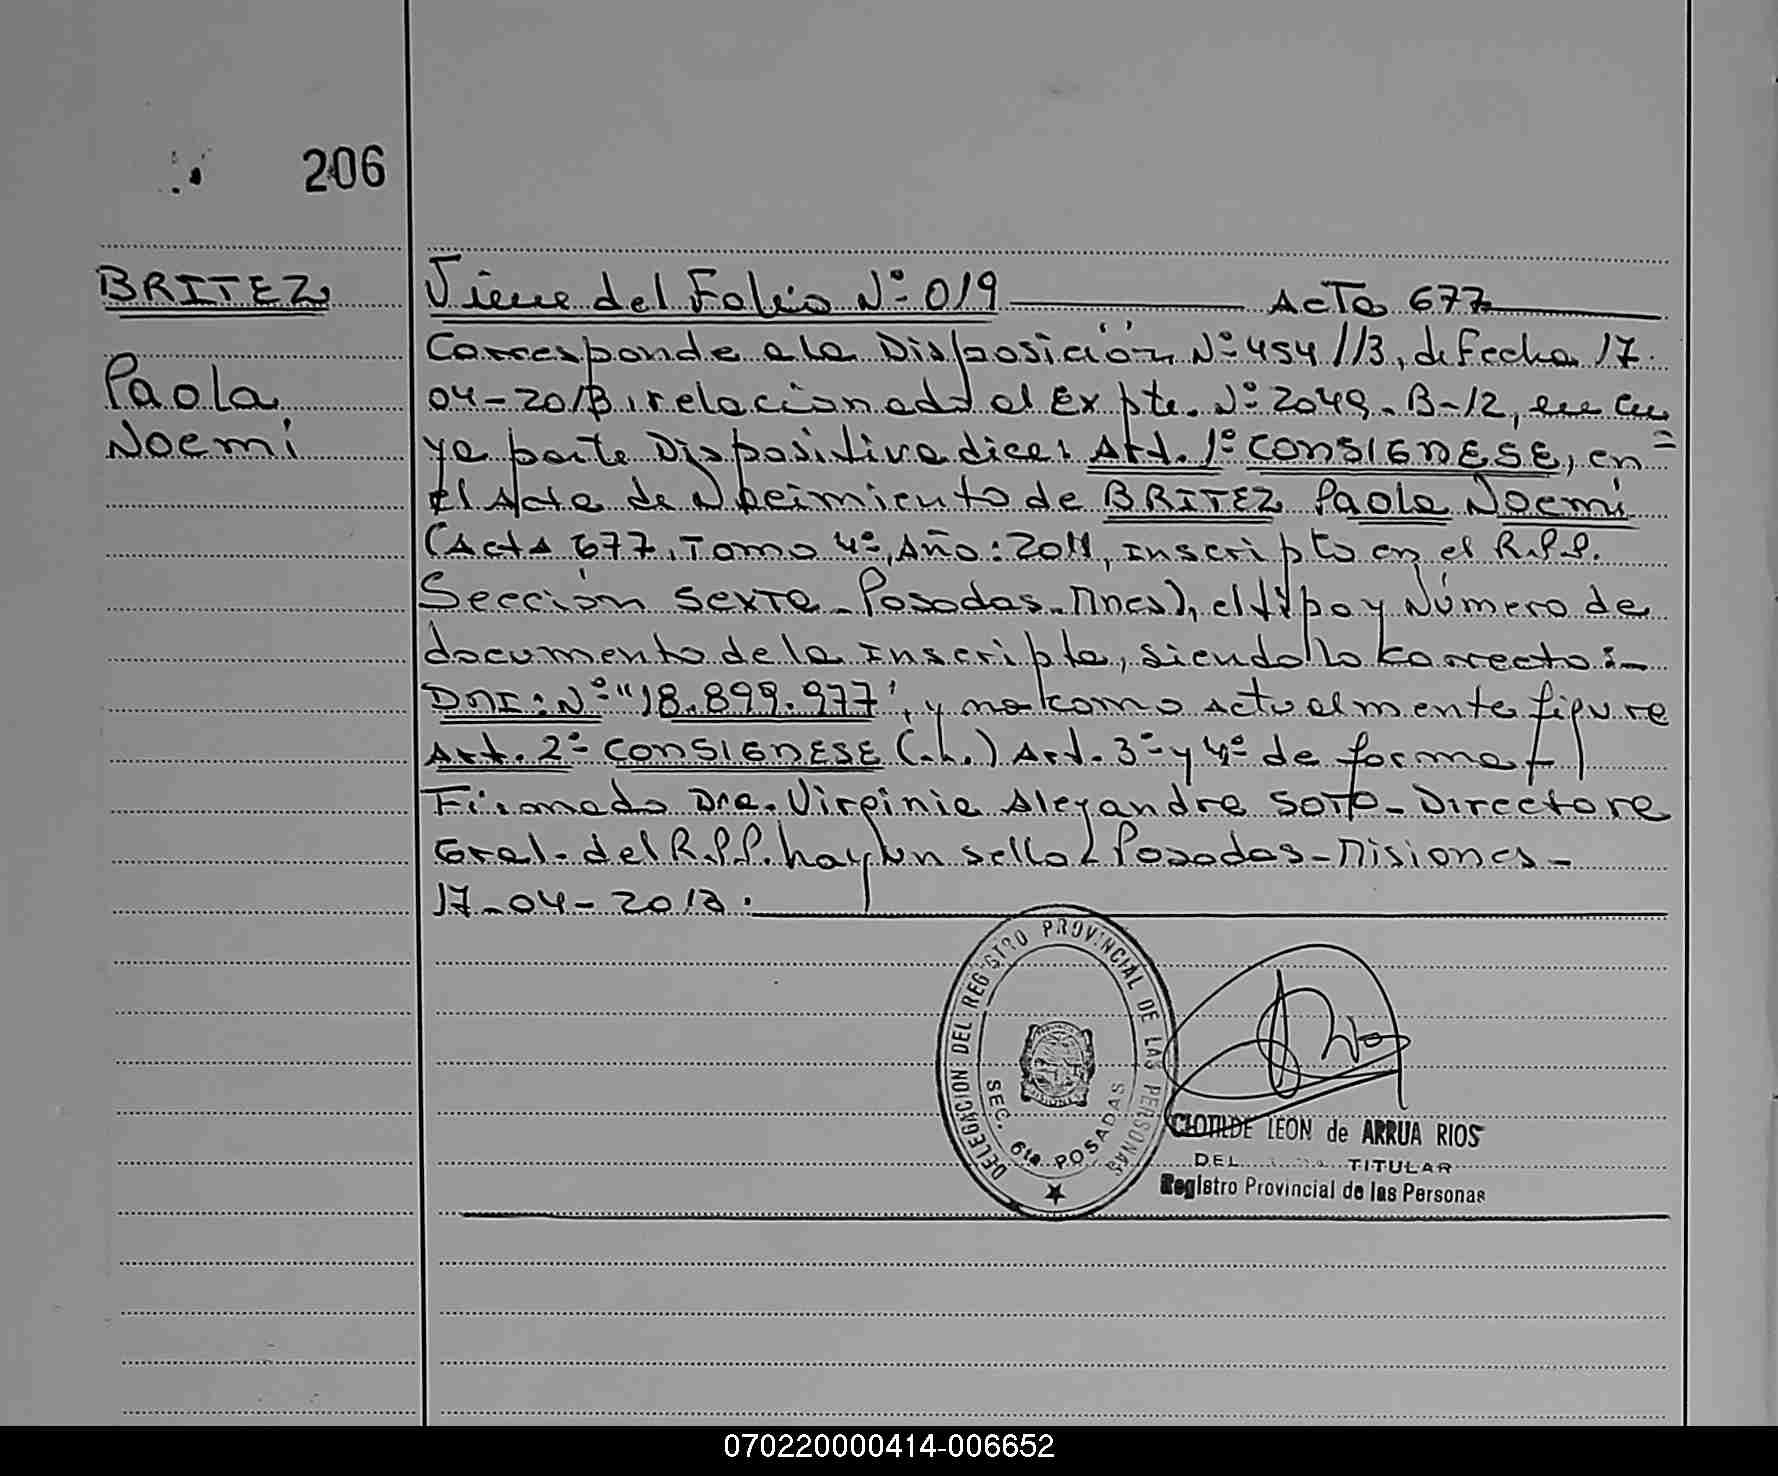 206
BRITEZ
Paola
Noemi
Viene del Folio Nº 019 Acta 677
Corresponde a la Disposición Nº 454/13, de Fecha 17.
04-2013, relacionado al Expte. Nº 2049-B-12, en cu=
ya parte Dispositiva dice: Art. 1º CONSIGNESE, en
el Acta de Nacimiento de BRITEZ Paola Noemi
(Acta 677, Tomo 4º, Año: 2011, inscripto en el R.P.P.
Sección sexta - Posadas - Mnes), el tipo y Número de
documento de la inscripta, siendo lo correcto:-
DNI: Nº "18.899.977", y no como actualmente figura
Art. 2º CONSIGNESE (..h..) Art. 3º y 4º de forma
Firmado Dra. Virginia Alejandra SOTO - Directora
Gral. del R.P.P. hay un sello - Posadas - Misiones -
17-04-2013.
DELEGACION DEL REGISTRO PROVINCIAL DE LAS PERSONAS
SEC. 6ta POSADAS
CLOTILDE LEON de ARRUA RIOS
DEL TITULAR
Registro Provincial de las Personas
070220000414-006652